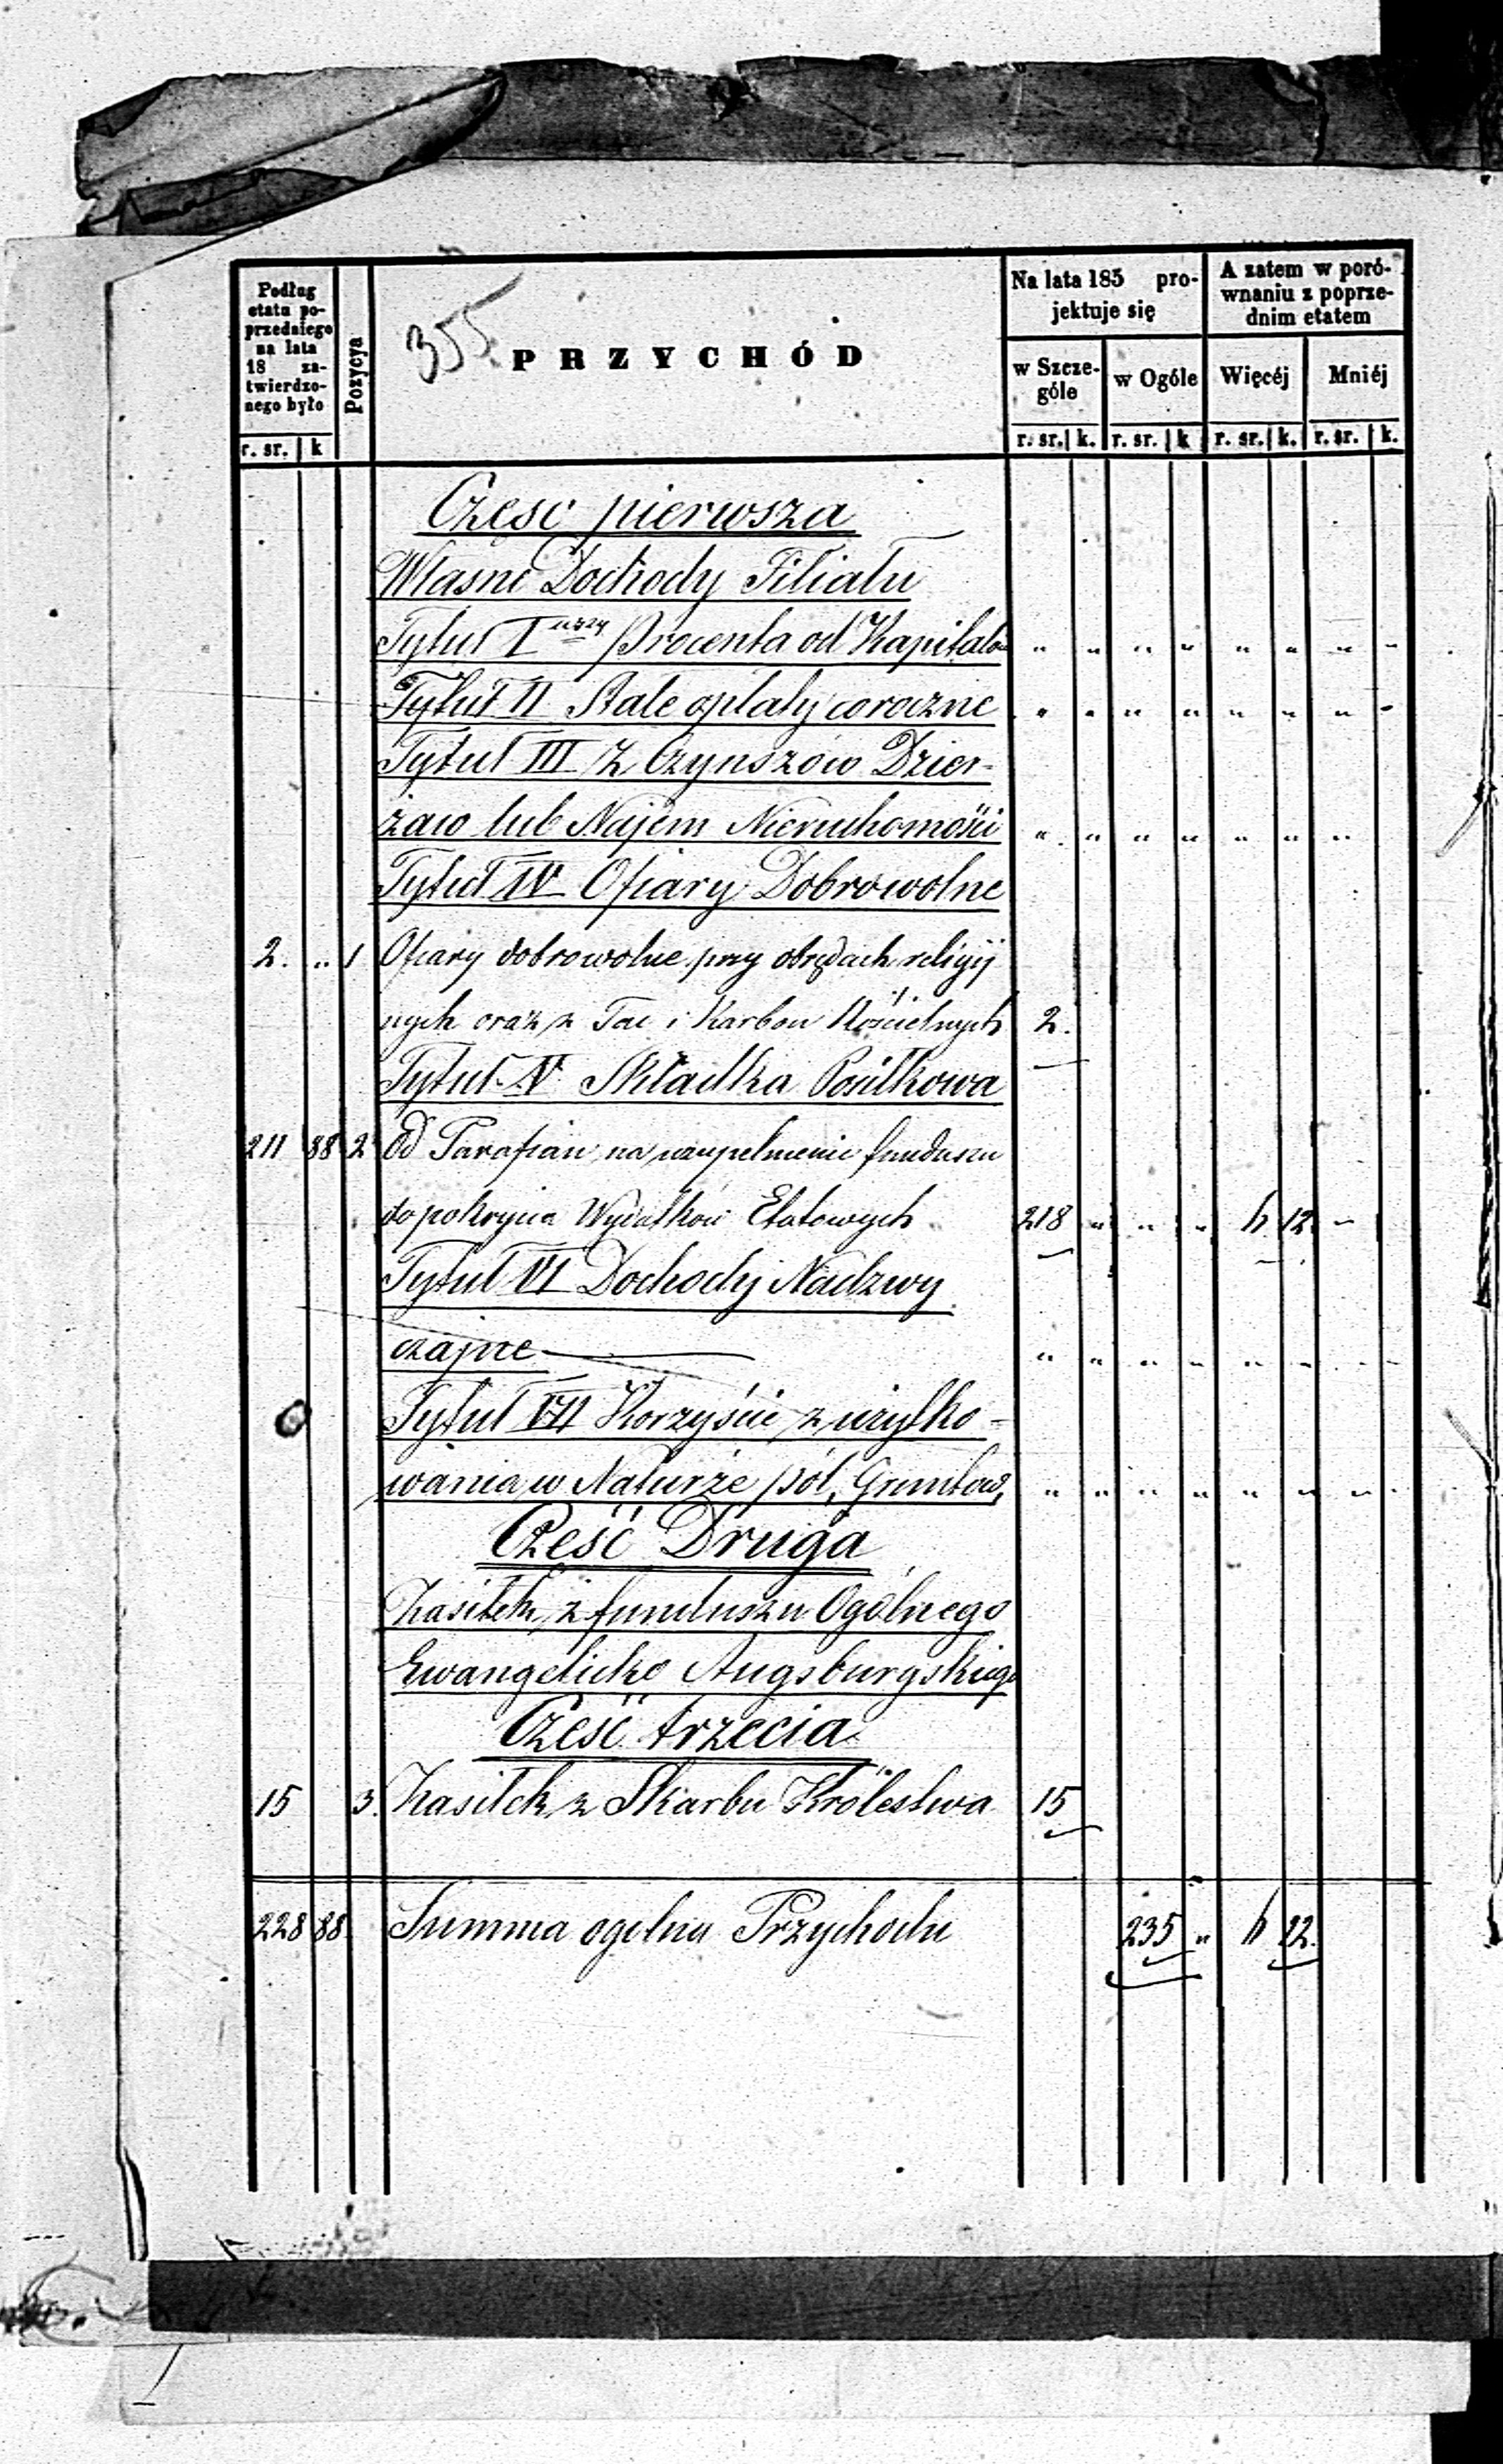 355
Podług etatu poprzedniego na lata 18 zatwierdzonego było
r. sr. k
Pozycya
PRZYCHÓD
Na lata 185 projektuje się
w Szczególe
r. sr. k.
w Ogóle
r. sr. k
A zatem w porównaniu z poprzednim etatem
Więcéj
r. sr. k.
Mniéj
r. sr. k.
Część pierwsza
Własne Dochody Filiału
Tytuł I Procenta od Kapitałów " " " " " " " "
Tytuł II Stałe opłaty coroczne " " " " " " " "
Tytuł III Z Czynszów Dzier-
żaw lub Najem Nieruchomości " " " " " " "
Tytuł IV Ofiary Dobrowolne
2. " 1 Ofiary dobrowolne przy obrzędach religij
nych oraz z Tac i Karbon Kościelnych 2.
Tytuł V Składka Posiłkowa
211 88 2 Od Parafian na uzupełnienie funduszu
do pokrycia Wydatków Etatowych 218 " " " 6 12 "
Tytuł VI Dochody Nadzwy
czajne " " " " " " " "
Tytuł VII Korzyści z użytko-
wania w Naturze pól, Gruntów, " " " " " " " "
Część Druga
Zasiłek z funduszu Ogólnego
Ewangelicko Augsburgskiego
Część trzecia
15 3. Zasiłek z Skarbu Królestwa 15
228 88 Summa ogólna Przychodu 235 " 6 12.